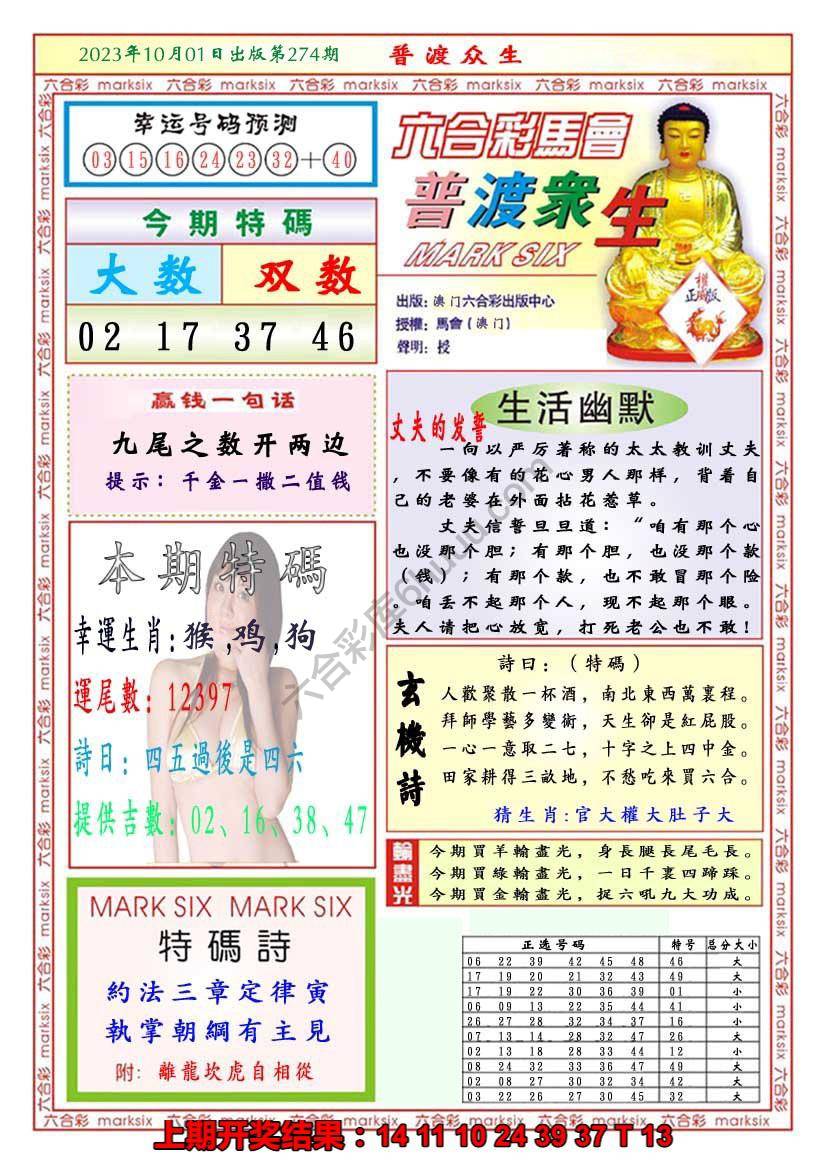 2023年10月01日出版第274期
普渡众生
六合彩 marksix 六合彩 marksix 六合彩 marksix 六合彩 marksix 六合彩 marksix 六合彩 marksix
幸运号码预测
03 15 16 24 23 32 + 40
今期特碼
大数 双数
02 17 37 46
六合彩馬會
普渡衆生
MARK SIX
出版: 澳门六合彩出版中心
授權: 馬會(澳门)
聲明: 授
權
正版
赢钱一句话
九尾之数开两边
提示：千金一撒二值钱
本期特碼
幸運生肖:猴,鸡,狗
運尾數: 12397
詩曰: 四五過後是四六
提供吉數: 02、16、38、47
MARK SIX MARK SIX
特碼詩
約法三章定律寅
執掌朝綱有主見
附: 離龍坎虎自相從
生活幽默
丈夫的发誓
一向以严厉著称的太太教训丈夫
，不要像有的花心男人那样，背着自
己的老婆在外面拈花惹草。
丈夫信誓旦旦道：“咱有那个心
也没那个胆；有那个胆，也没那个款
（钱）；有那个款，也不敢冒那个险
。咱丢不起那个人，现不起那个眼。
夫人请把心放宽，打死老公也不敢！
玄機詩
詩曰：（特碼）
人歡聚散一杯酒，南北東西萬裏程。
拜師學藝多變術，天生卻是紅屁股。
一心一意取二七，十字之上四中金。
田家耕得三畝地，不愁吃來買六合。
猜生肖:官大權大肚子大
輸盡光
今期買羊輸盡光，身長腿長尾毛長。
今期買綠輸盡光，一日千裏四蹄踩。
今期買金輸盡光，捉六吼九大功成。
正选号码 特号 总分大小
06 22 39 42 45 48 46 大
17 19 20 21 32 43 49 大
17 19 22 30 36 39 01 小
06 09 13 22 35 44 41 小
26 27 28 32 34 37 16 小
07 13 14 28 32 47 26 大
02 13 18 28 33 44 12 小
08 24 32 33 36 47 49 大
02 08 27 30 32 34 42 大
03 22 26 27 30 45 32 大
六合彩 marksix 六合彩 marksix 六合彩 marksix 六合彩 marksix 六合彩 marksix 六合彩 marksix
上期开奖结果：14 11 10 24 39 37 T 13